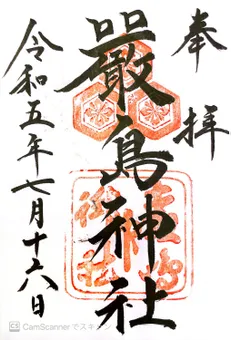 奉拝
嚴島神社
令和五年七月十六日
CS CamScanner でスキャン